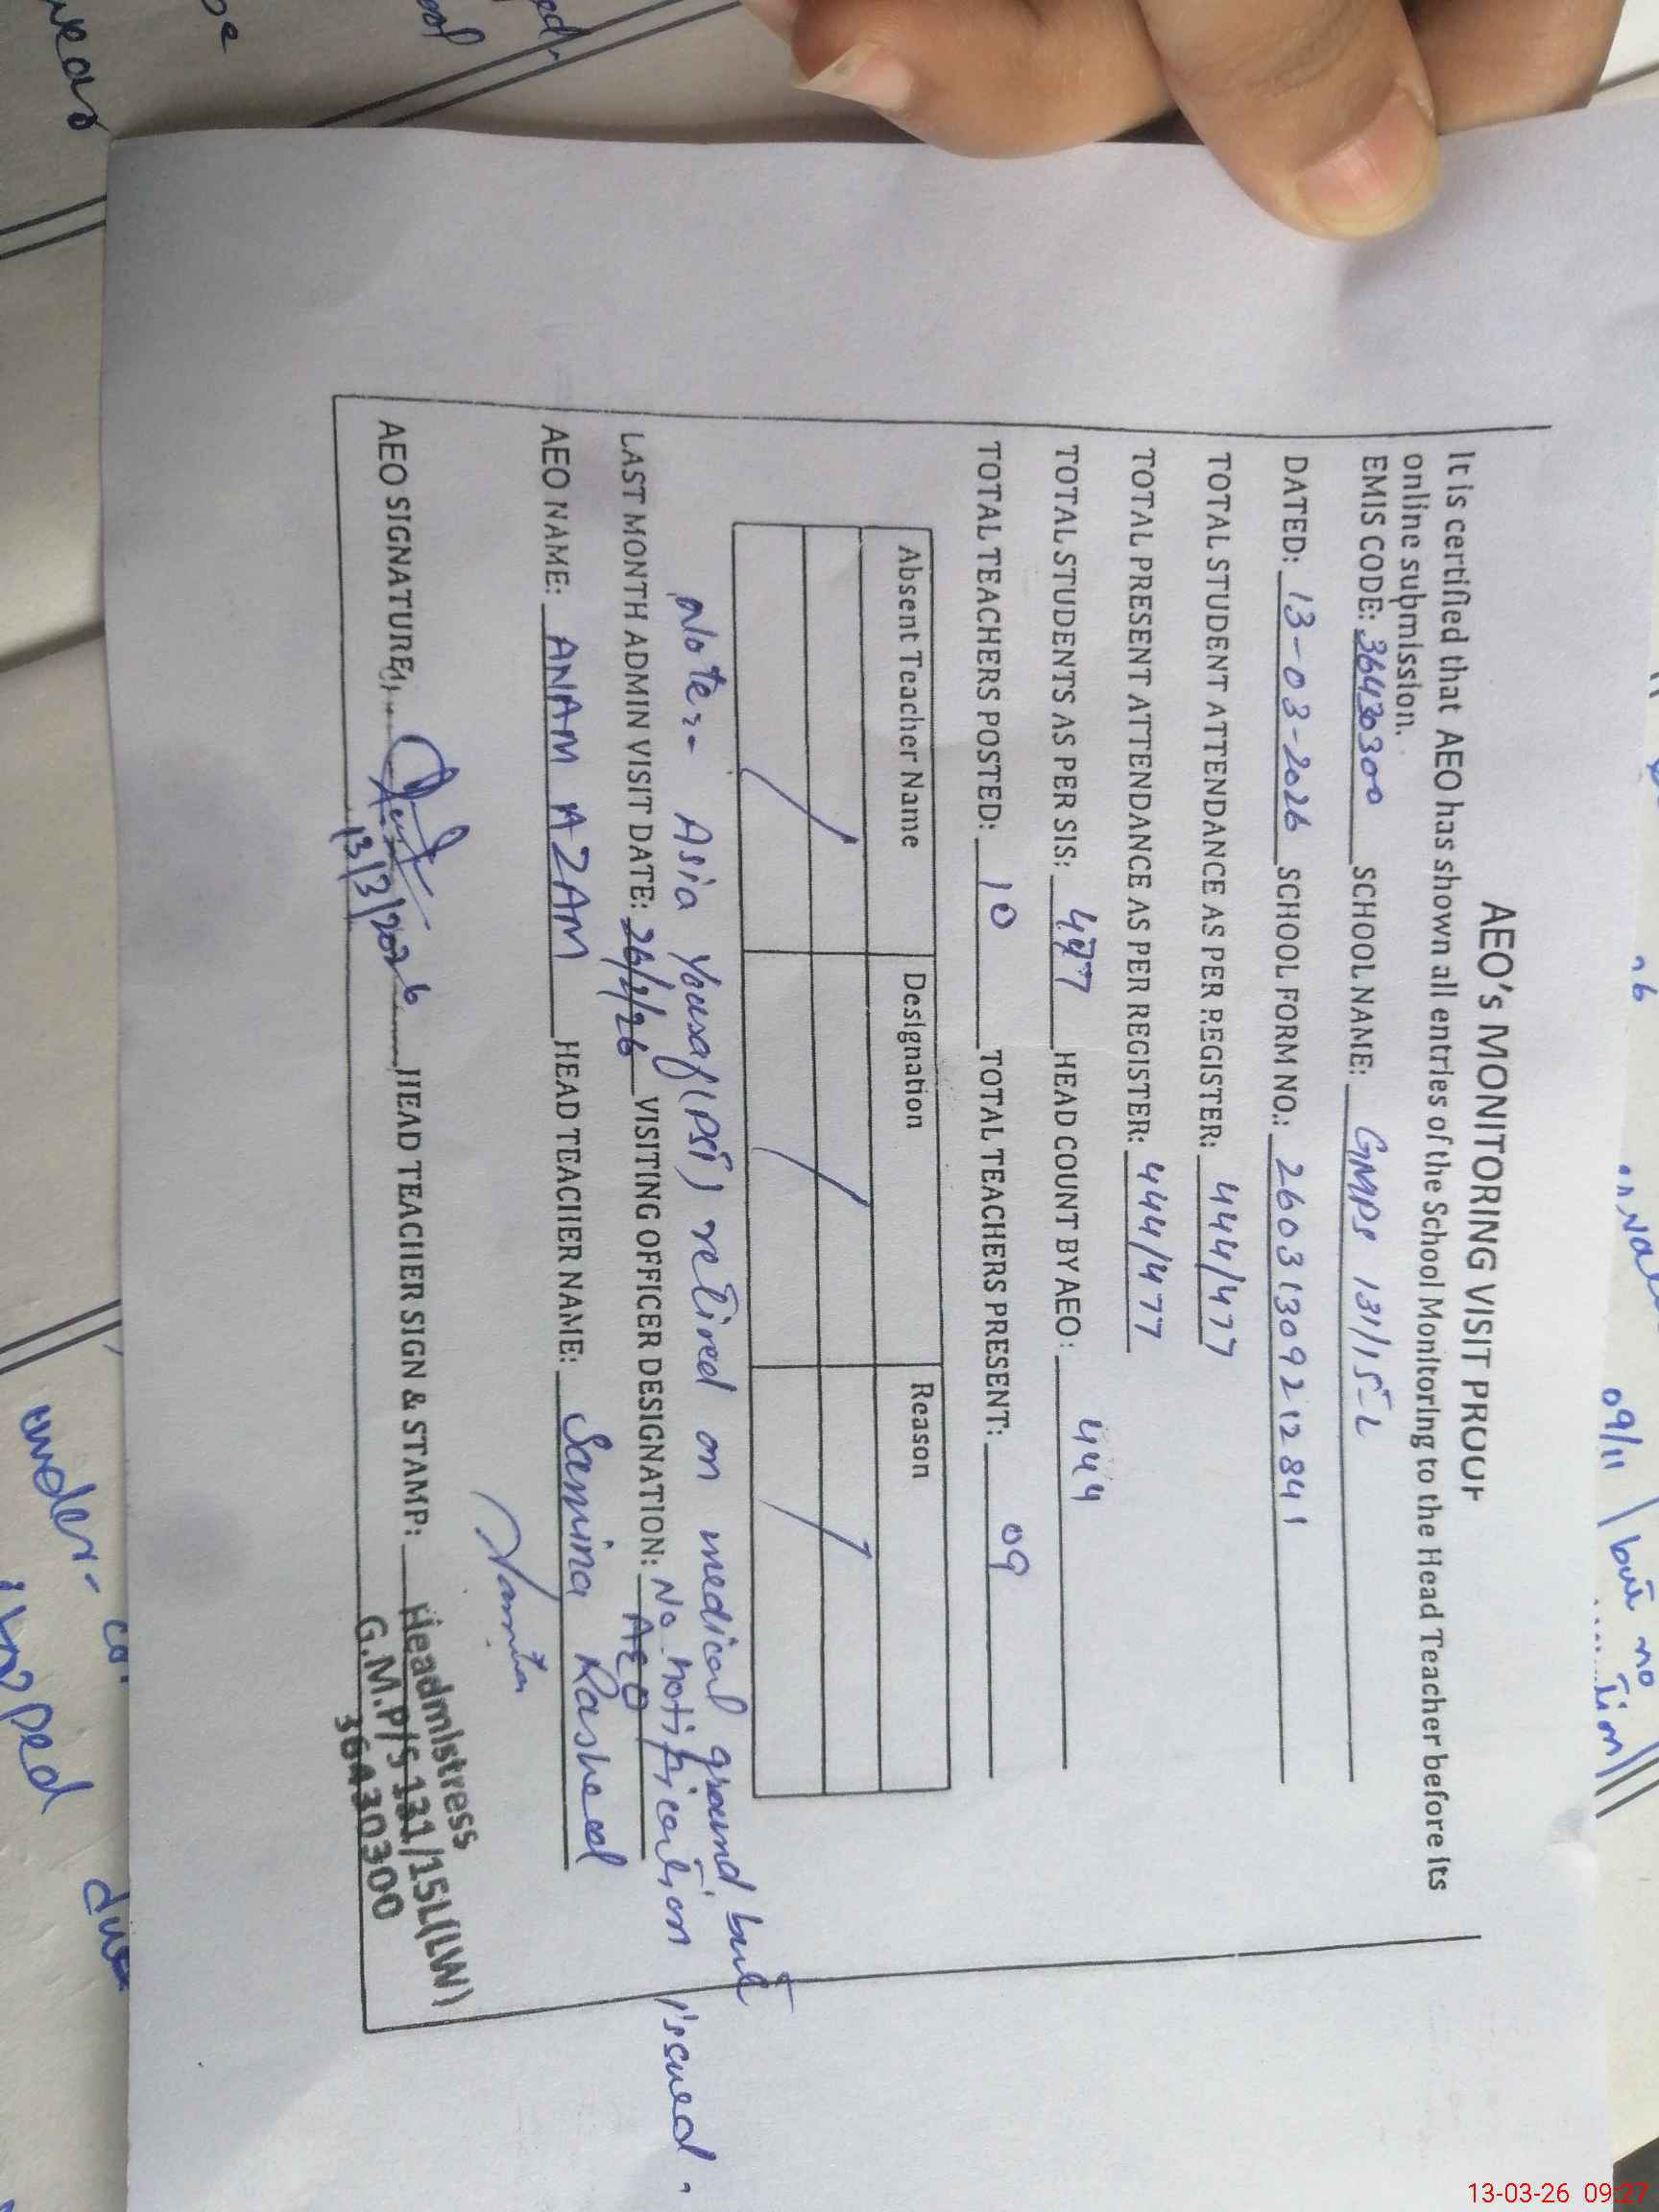 AEO's MONITORING VISIT PROOF
It is certified that AEO has shown all entries of the School Monitoring to the Head Teacher before its
online submission.
EMIS CODE: 36430300 SCHOOL NAME: GMPS 131/15-L
DATED: 13-03-2026 SCHOOL FORM NO.: 26031309212841
TOTAL STUDENT ATTENDANCE AS PER REGISTER: 444/477
TOTAL PRESENT ATTENDANCE AS PER REGISTER: 444/477
TOTAL STUDENTS AS PER SIS: 477 HEAD COUNT BY AEO: 444
TOTAL TEACHERS POSTED: 10 TOTAL TEACHERS PRESENT: 09
Absent Teacher Name Designation Reason
Note:- Asia Yousaf (PST) retired on medical ground, but
No notification issued.
LAST MONTH ADMIN VISIT DATE: 26/2/26 VISITING OFFICER DESIGNATION: AEO
AEO NAME: ANAM AZAM HEAD TEACHER NAME: Samina Rasheed
Samina
AEO SIGNATURE: 13/3/2026 HEAD TEACHER SIGN & STAMP: Headmistress
G.M.P/S 131/15L(LW)
36430300
09/11 but no
under-
due
13-03-26 09:27